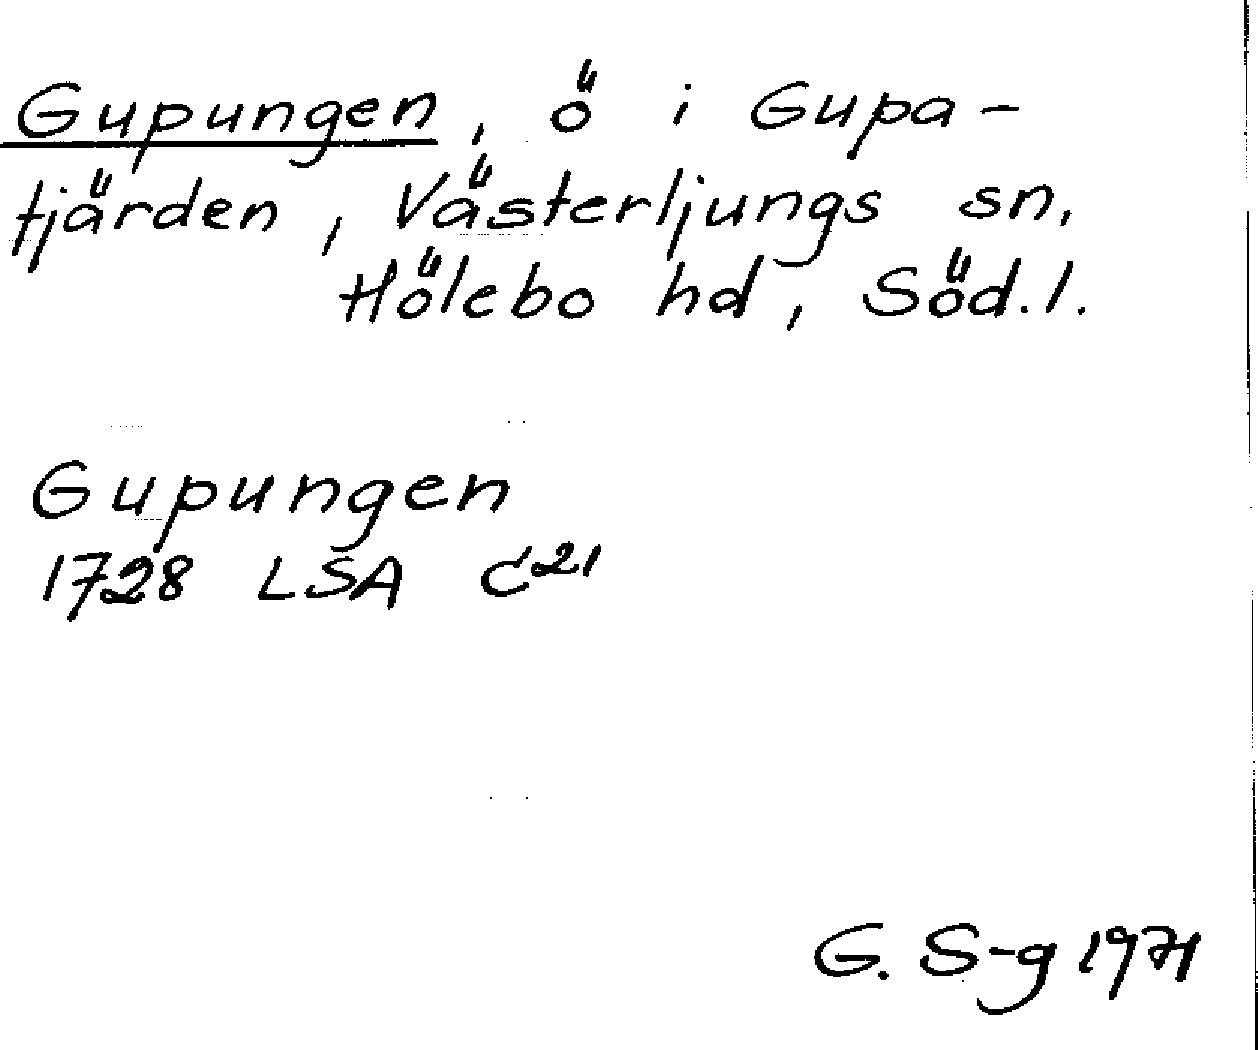 Gupungen, ö i Gupa-
fjärden, Västerljungs sn,
Hölebo hd, Söd.l.
Gupungen
1728 LSA C²¹
G. S-g 1971